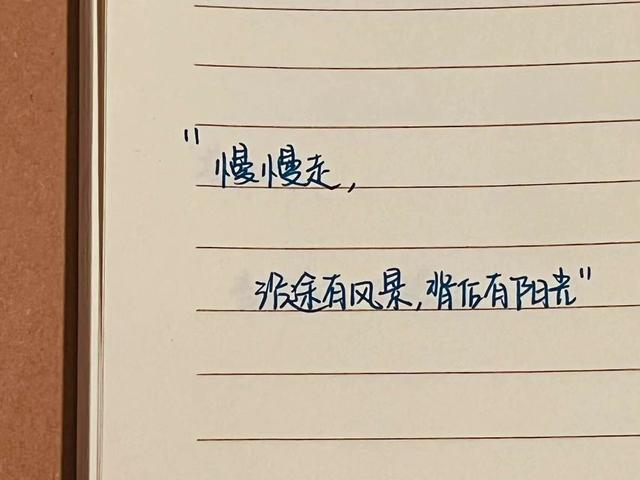 "慢慢走，
沿途有风景，背后有阳光"